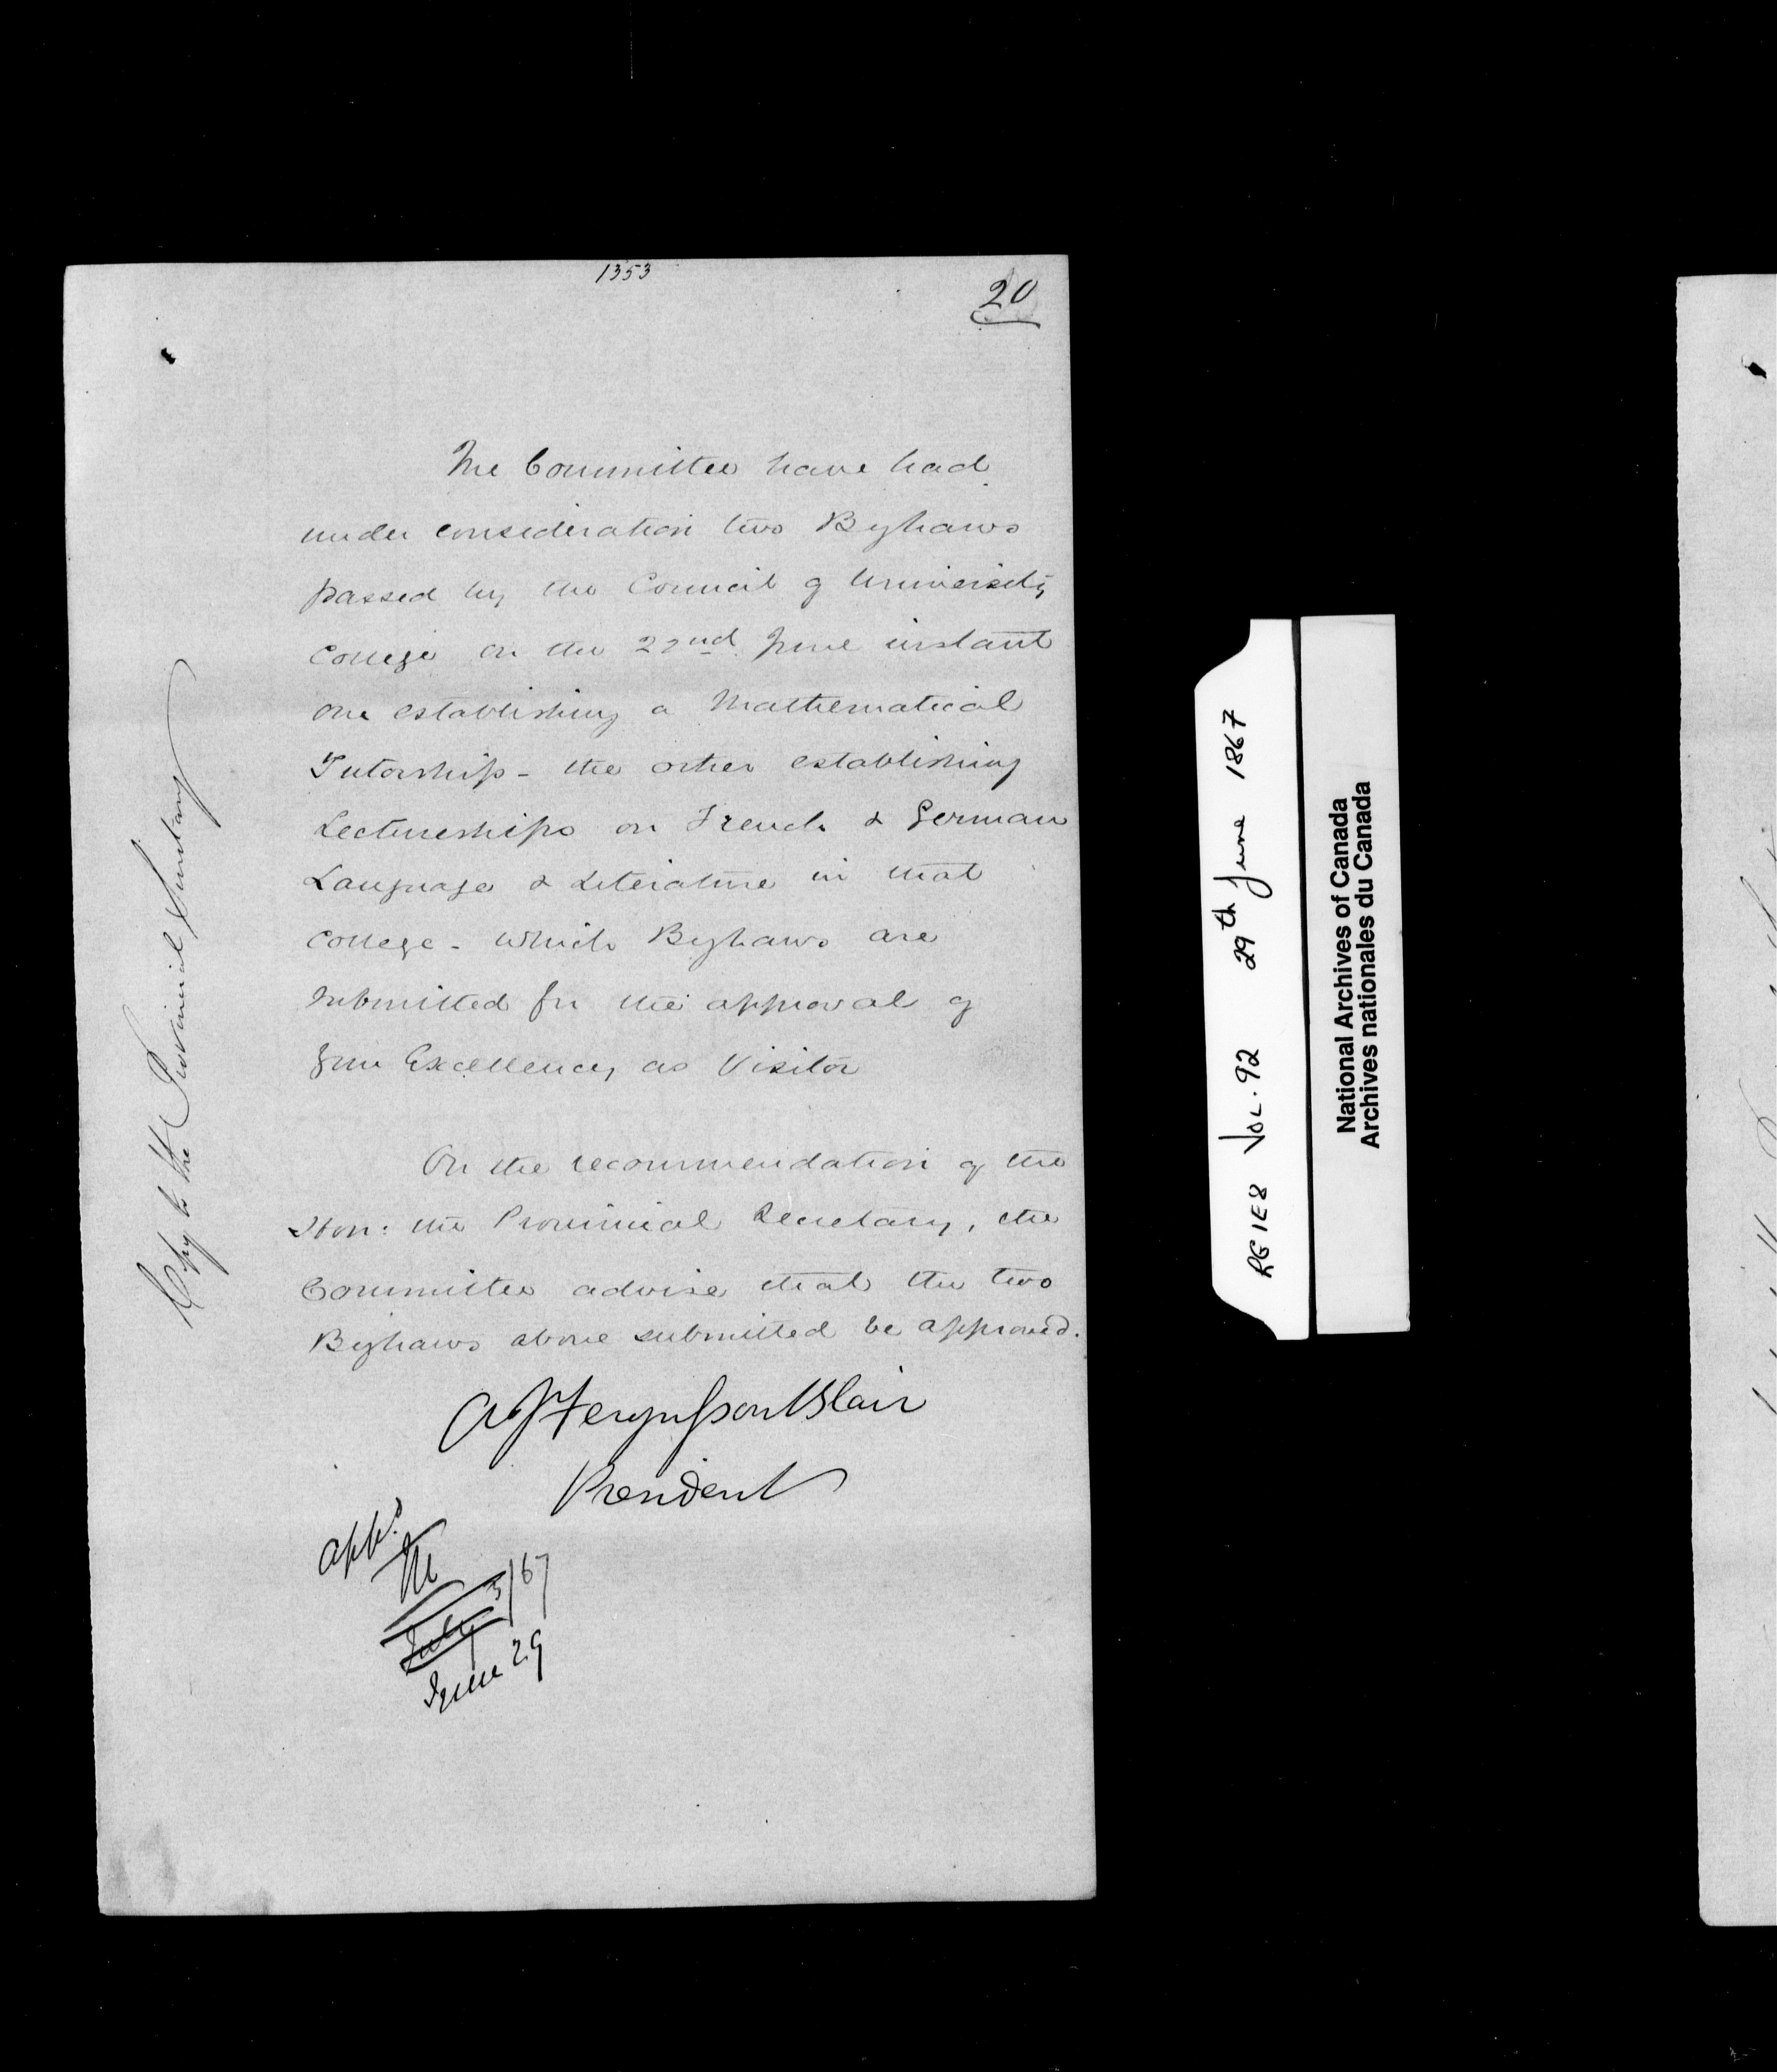 1353
20
The Committee have had
under consideration two Bylaws
passed by the Council of University
College on the 22nd June instant
one establishing a Mathematical
Tutorship - the other establishing
Lectureships on French & German
Language & Literature in that
College - which Bylaws are
submitted for the approval of
Your Excellency as Visitor
On the recommendation of the
Hon: the Provincial Secretary, the
Committee advise that the two
Bylaws above submitted be approved.
A J Fergusson Blair
President
appd
M
July 3/67
June 29
Copy to the Provincial Secretary
RG 1 E 8 VOL. 92 29th June 1867
National Archives of Canada
Archives nationales du Canada